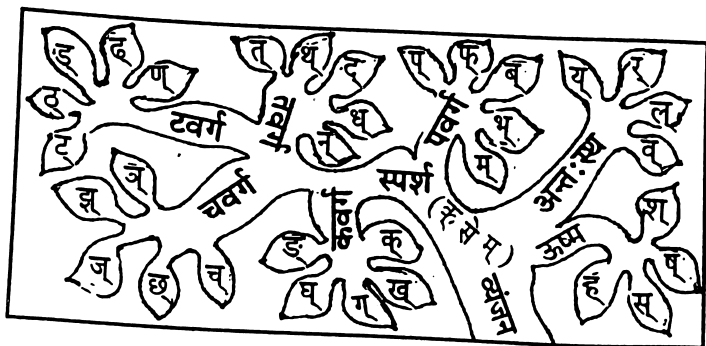 ड़
ढ़
ण्
ठ्
ट्
टवर्ग
त्
थ्
द्
ध्
न्
तवर्ग
प्
फ्
ब्
भ्
म्
पवर्ग
य्
र्
ल्
व्
अन्त:स्थ
झ्
ञ्
ज्
छ्
च्
चवर्ग
ङ
क
ख्
ग्
घ्
कवर्ग
स्पर्श
(क् से म्)
व्यंजन
ऊष्म
श्
ष्
स्
ह्